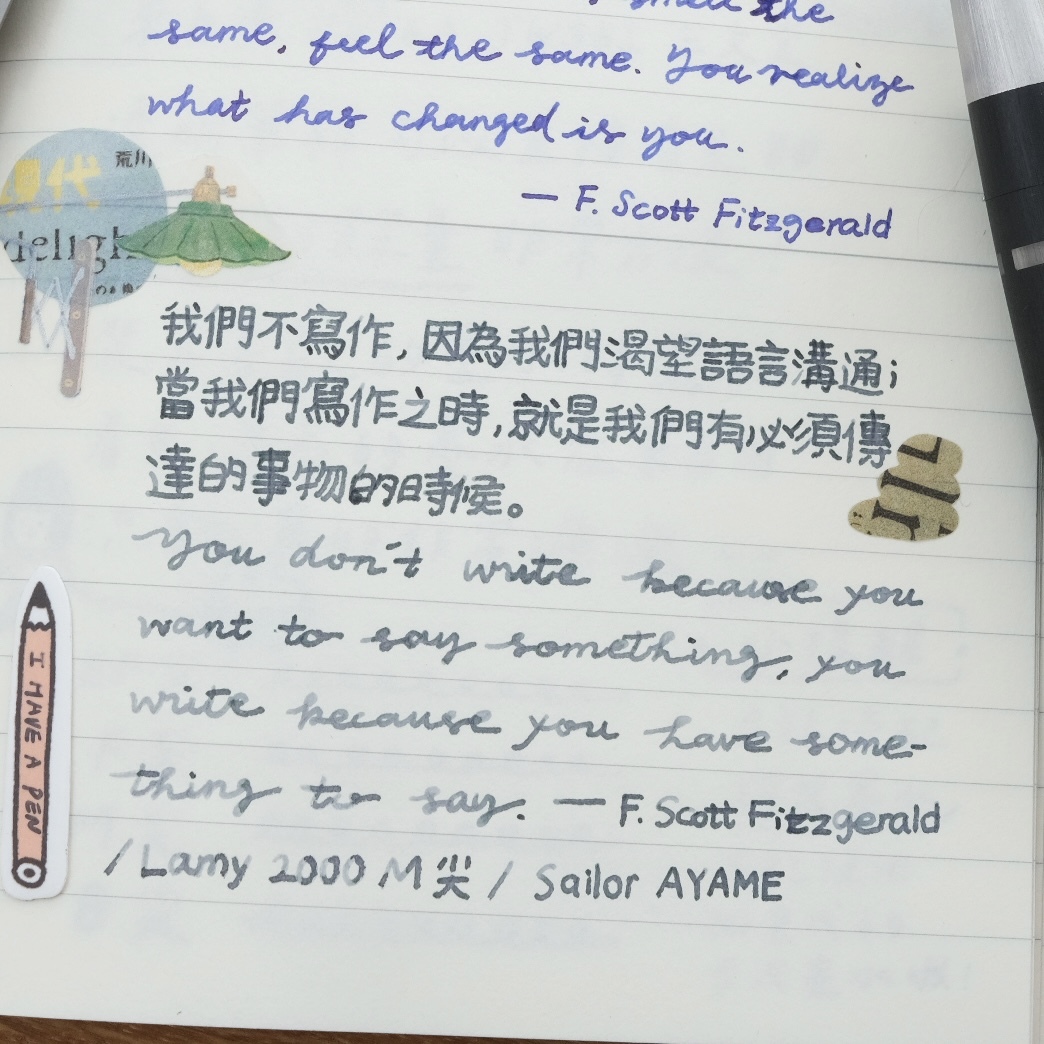 smell the
same, feel the same. You realize
what has changed is you.
— F. Scott Fitzgerald
荒川
現代
deligh
我們不寫作,因為我們渴望語言溝通;
當我們寫作之時,就是我們有必須傳
達的事物的時候。
You don't write because you
want to say something, you
write because you have some-
thing to say. — F. Scott Fitzgerald
/ Lamy 2000 M尖 / Sailor AYAME
I HAVE A PEN